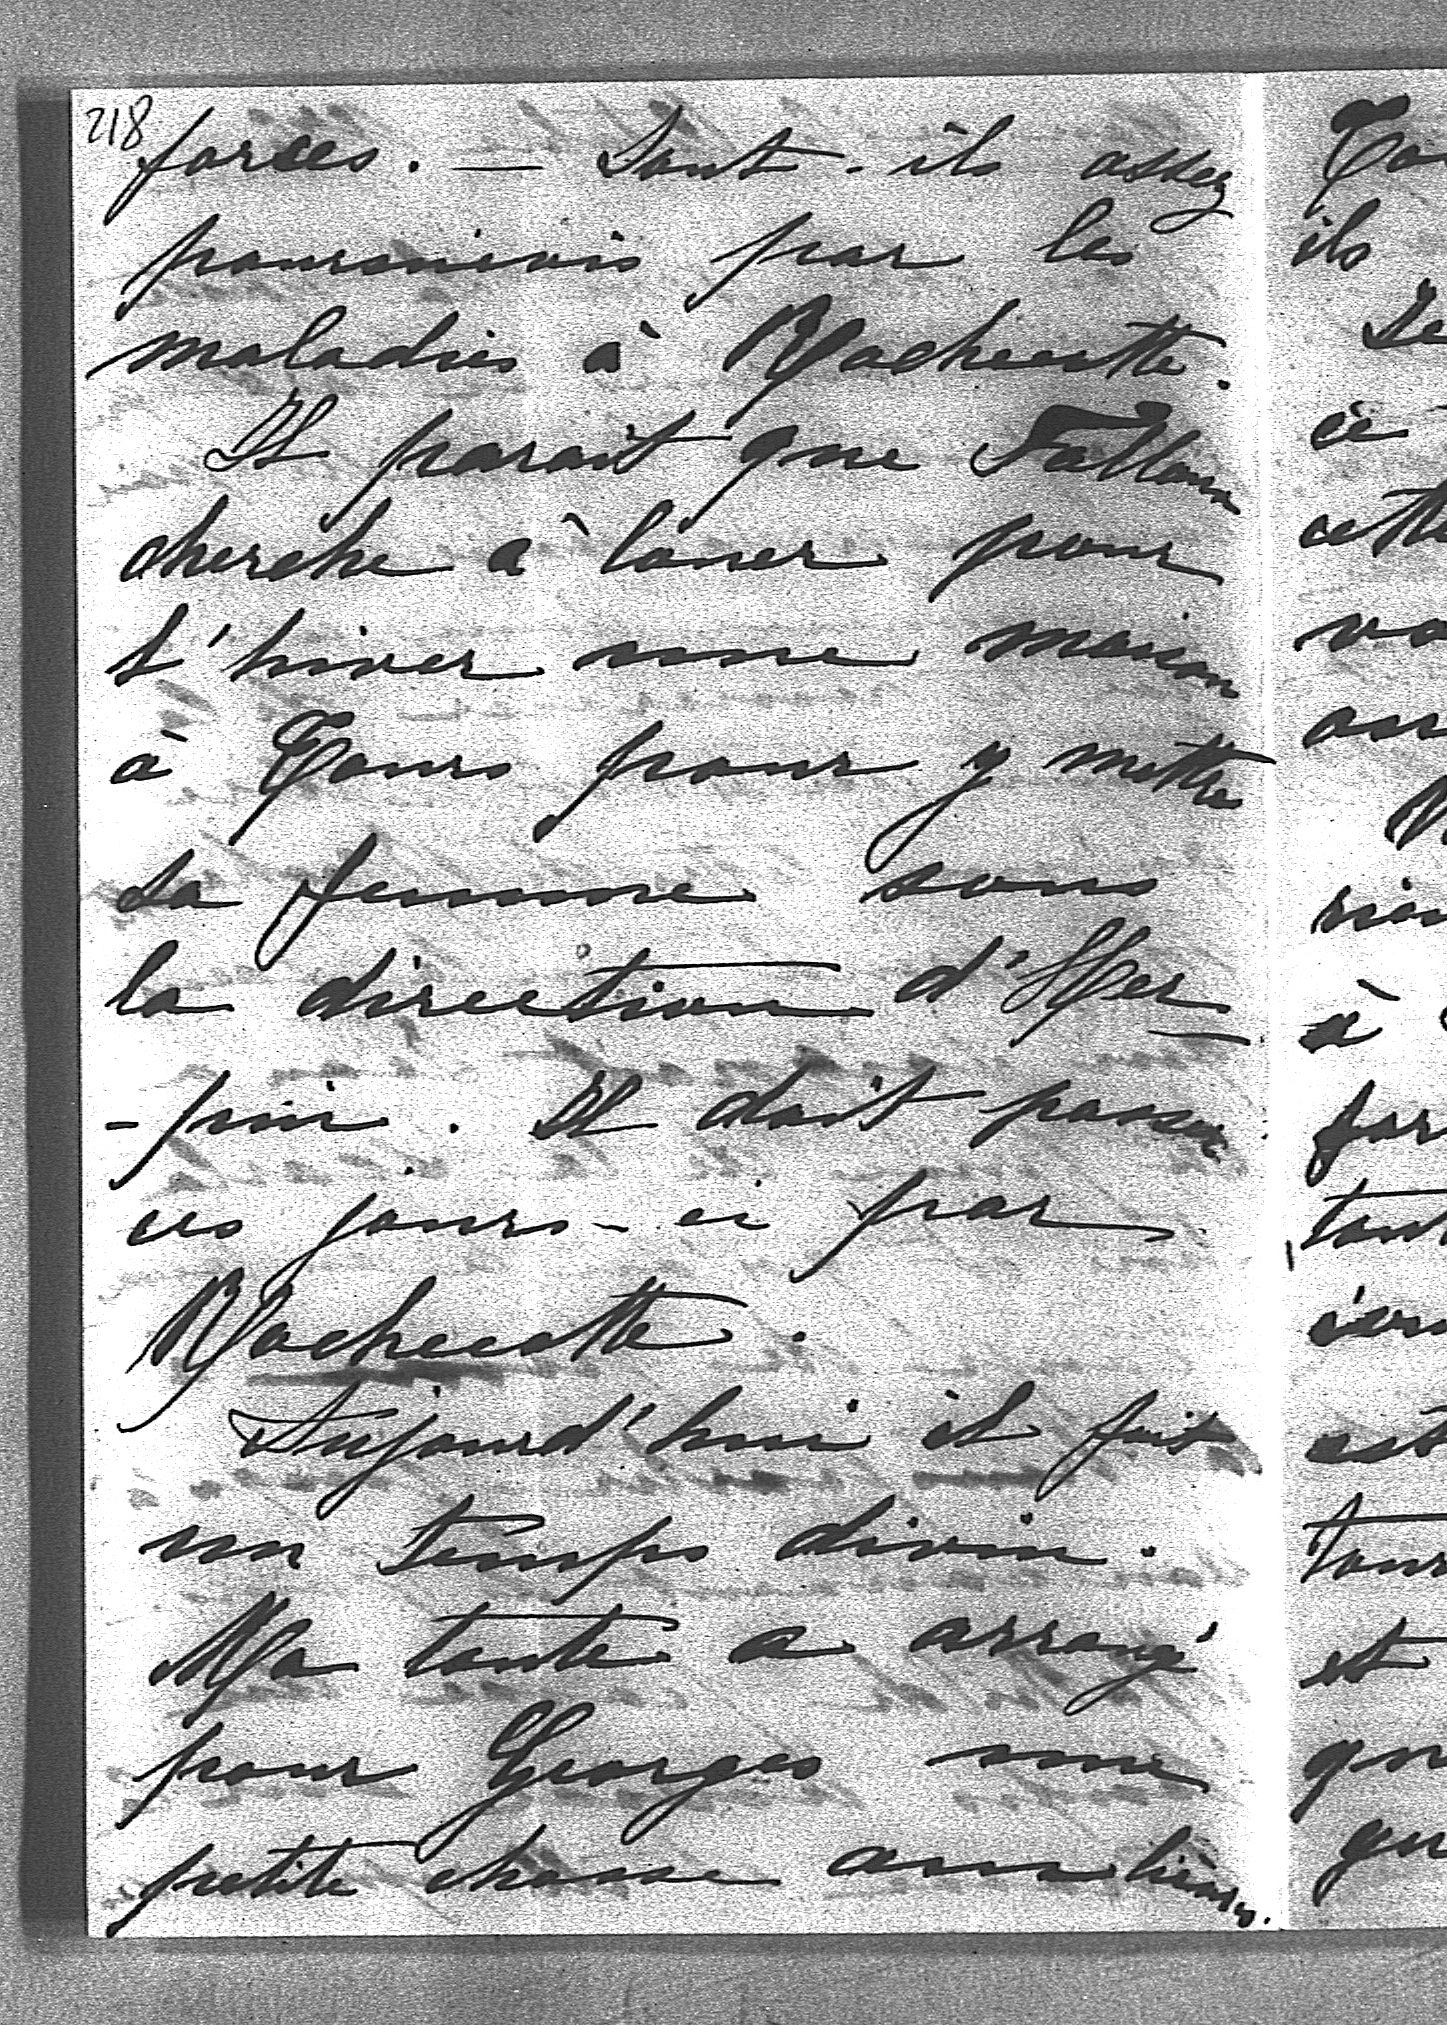 218
forces. — Sont-ils assez
poursuivis par les
maladies à Rochecotte.
Il paraît que Falloux
cherche à louer pour
l'hiver une maison
à Tours pour y mettre
sa femme sous
la direction d'Her-
-pin. Il doit passer
ces jours-ci par
Rochecotte.
Aujourd'hui il fait
un temps divin.
Ma tante a arrangé
pour Georges une
petite chasse aux lièvres.
ils
ci
cette
à
est
et